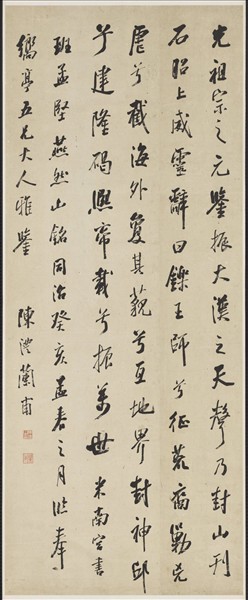 光祖宗之元靈振大漢之天聲乃封山刊
石昭上威靈辭曰鑠王師兮征荒裔勦兇
虐兮截海外敻其藐兮亙地界封神邱
兮建隆碣熙帝載兮振萬世 米南宮書
班孟堅燕然山銘同治癸亥孟春之月臨奉
亭五兄大人雅鑒 陳澧蘭甫